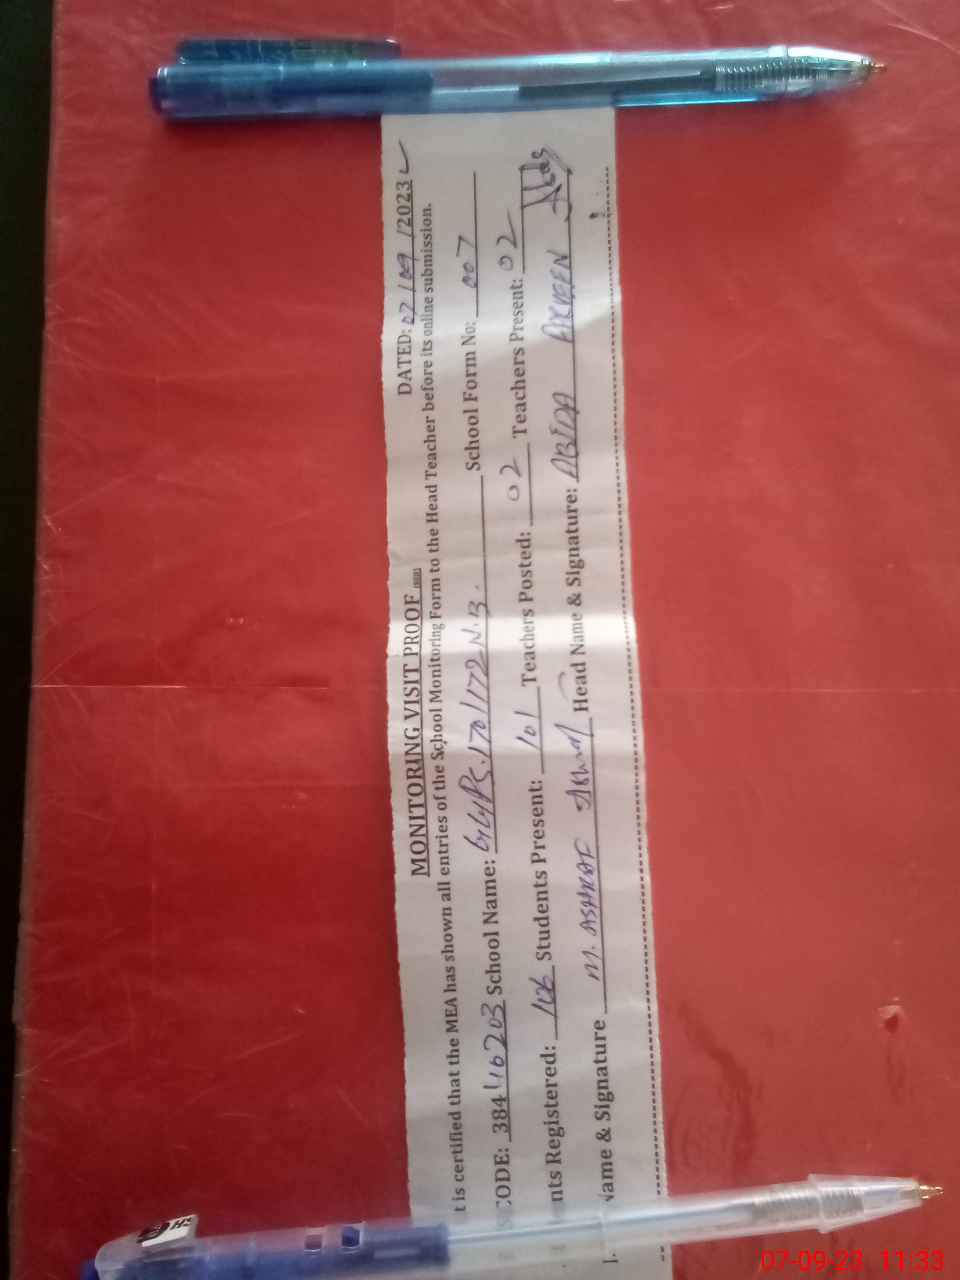 MONITORING VISIT PROOF
DATED: 07/09/2023
t is certified that the MEA has shown all entries of the School Monitoring Form to the Head Teacher before its online submission.
CODE: 38410203 School Name: GGPS.170/172 N.B. School Form No: 007
nts Registered: 106 Students Present: 101 Teachers Posted: 02 Teachers Present: 02
Name & Signature M. ASHRAF Head Name & Signature: ABIDA PARVEEN
07-09-23 11:33